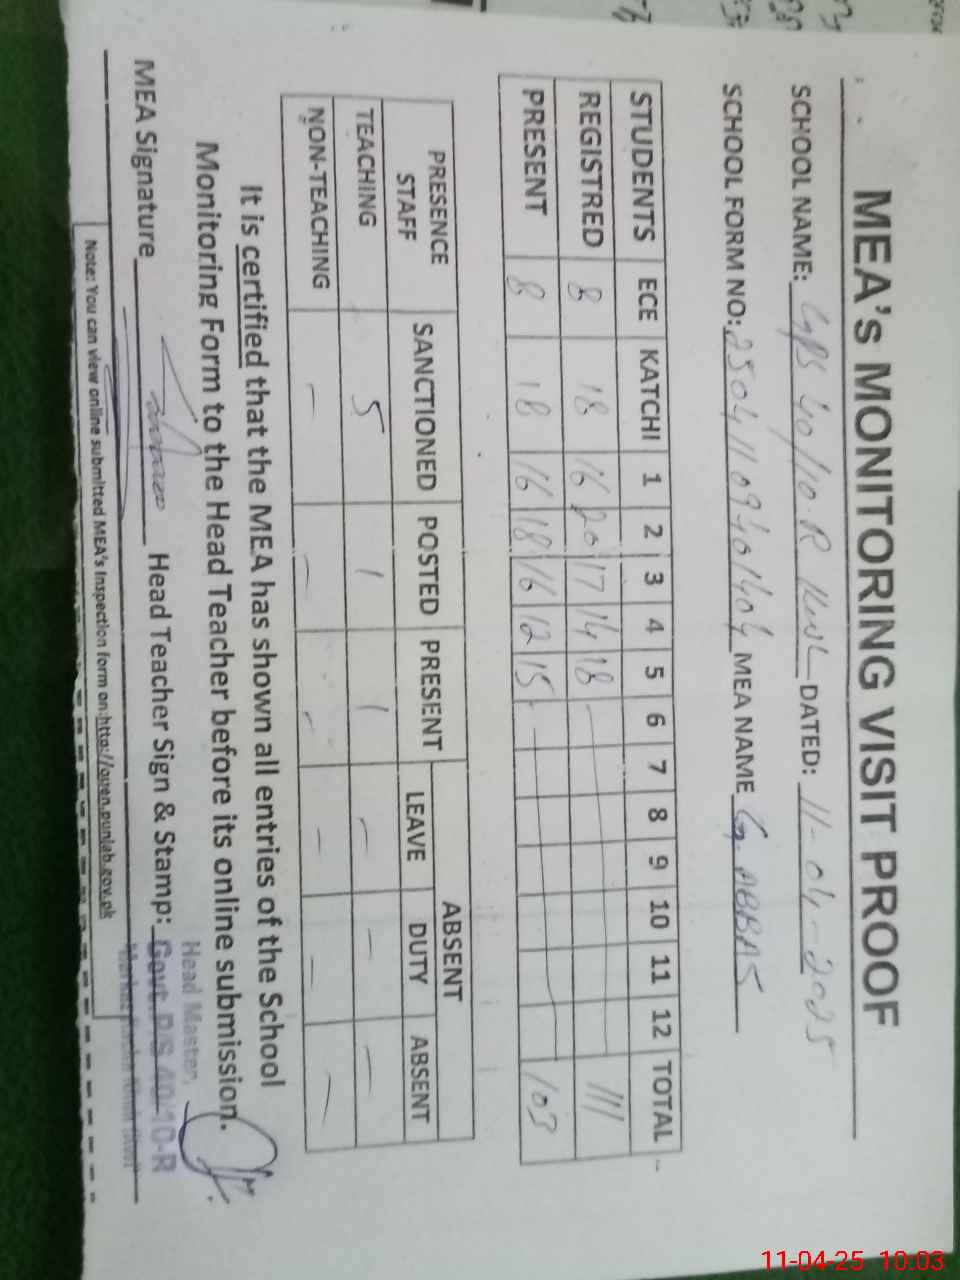 MEA's MONITORING VISIT PROOF
SCHOOL NAME: GPS 40/10.R KWL DATED: 11-04-2025
SCHOOL FORM NO: MEA NAME G. ABBAS
STUDENTS ECE KATCHI 1 2 3 4 5 6 7 8 9 10 11 12 TOTAL
REGISTRED 8 18 16 20 17 14 18 111
PRESENT 8 18 16 18 16 12 15 103
PRESENCE STAFF SANCTIONED POSTED PRESENT ABSENT
LEAVE DUTY ABSENT
TEACHING 5 1 1 - - -
NON-TEACHING - - - - - -
It is certified that the MEA has shown all entries of the School
Monitoring Form to the Head Teacher before its online submission.
MEA Signature Head Teacher Sign & Stamp:
Head Master,
Govt. P/S 40/10-R
Note: You can view online submitted MEA's Inspection form on:http://open.punjab.gov.pk
11-04-25 10:03